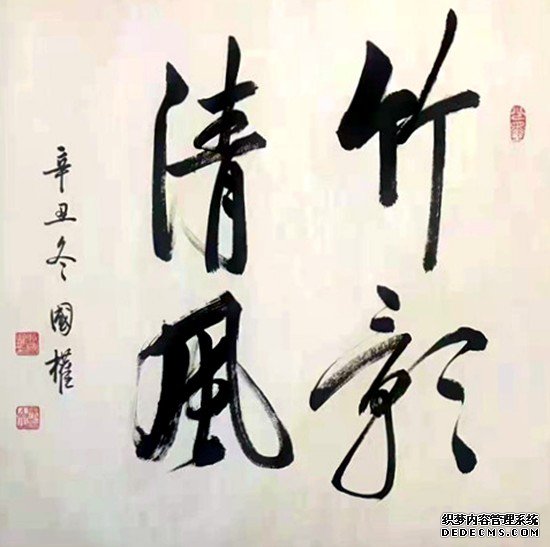 竹影
清風
辛丑冬國權
织梦内容管理系统
DEDECMS.COM